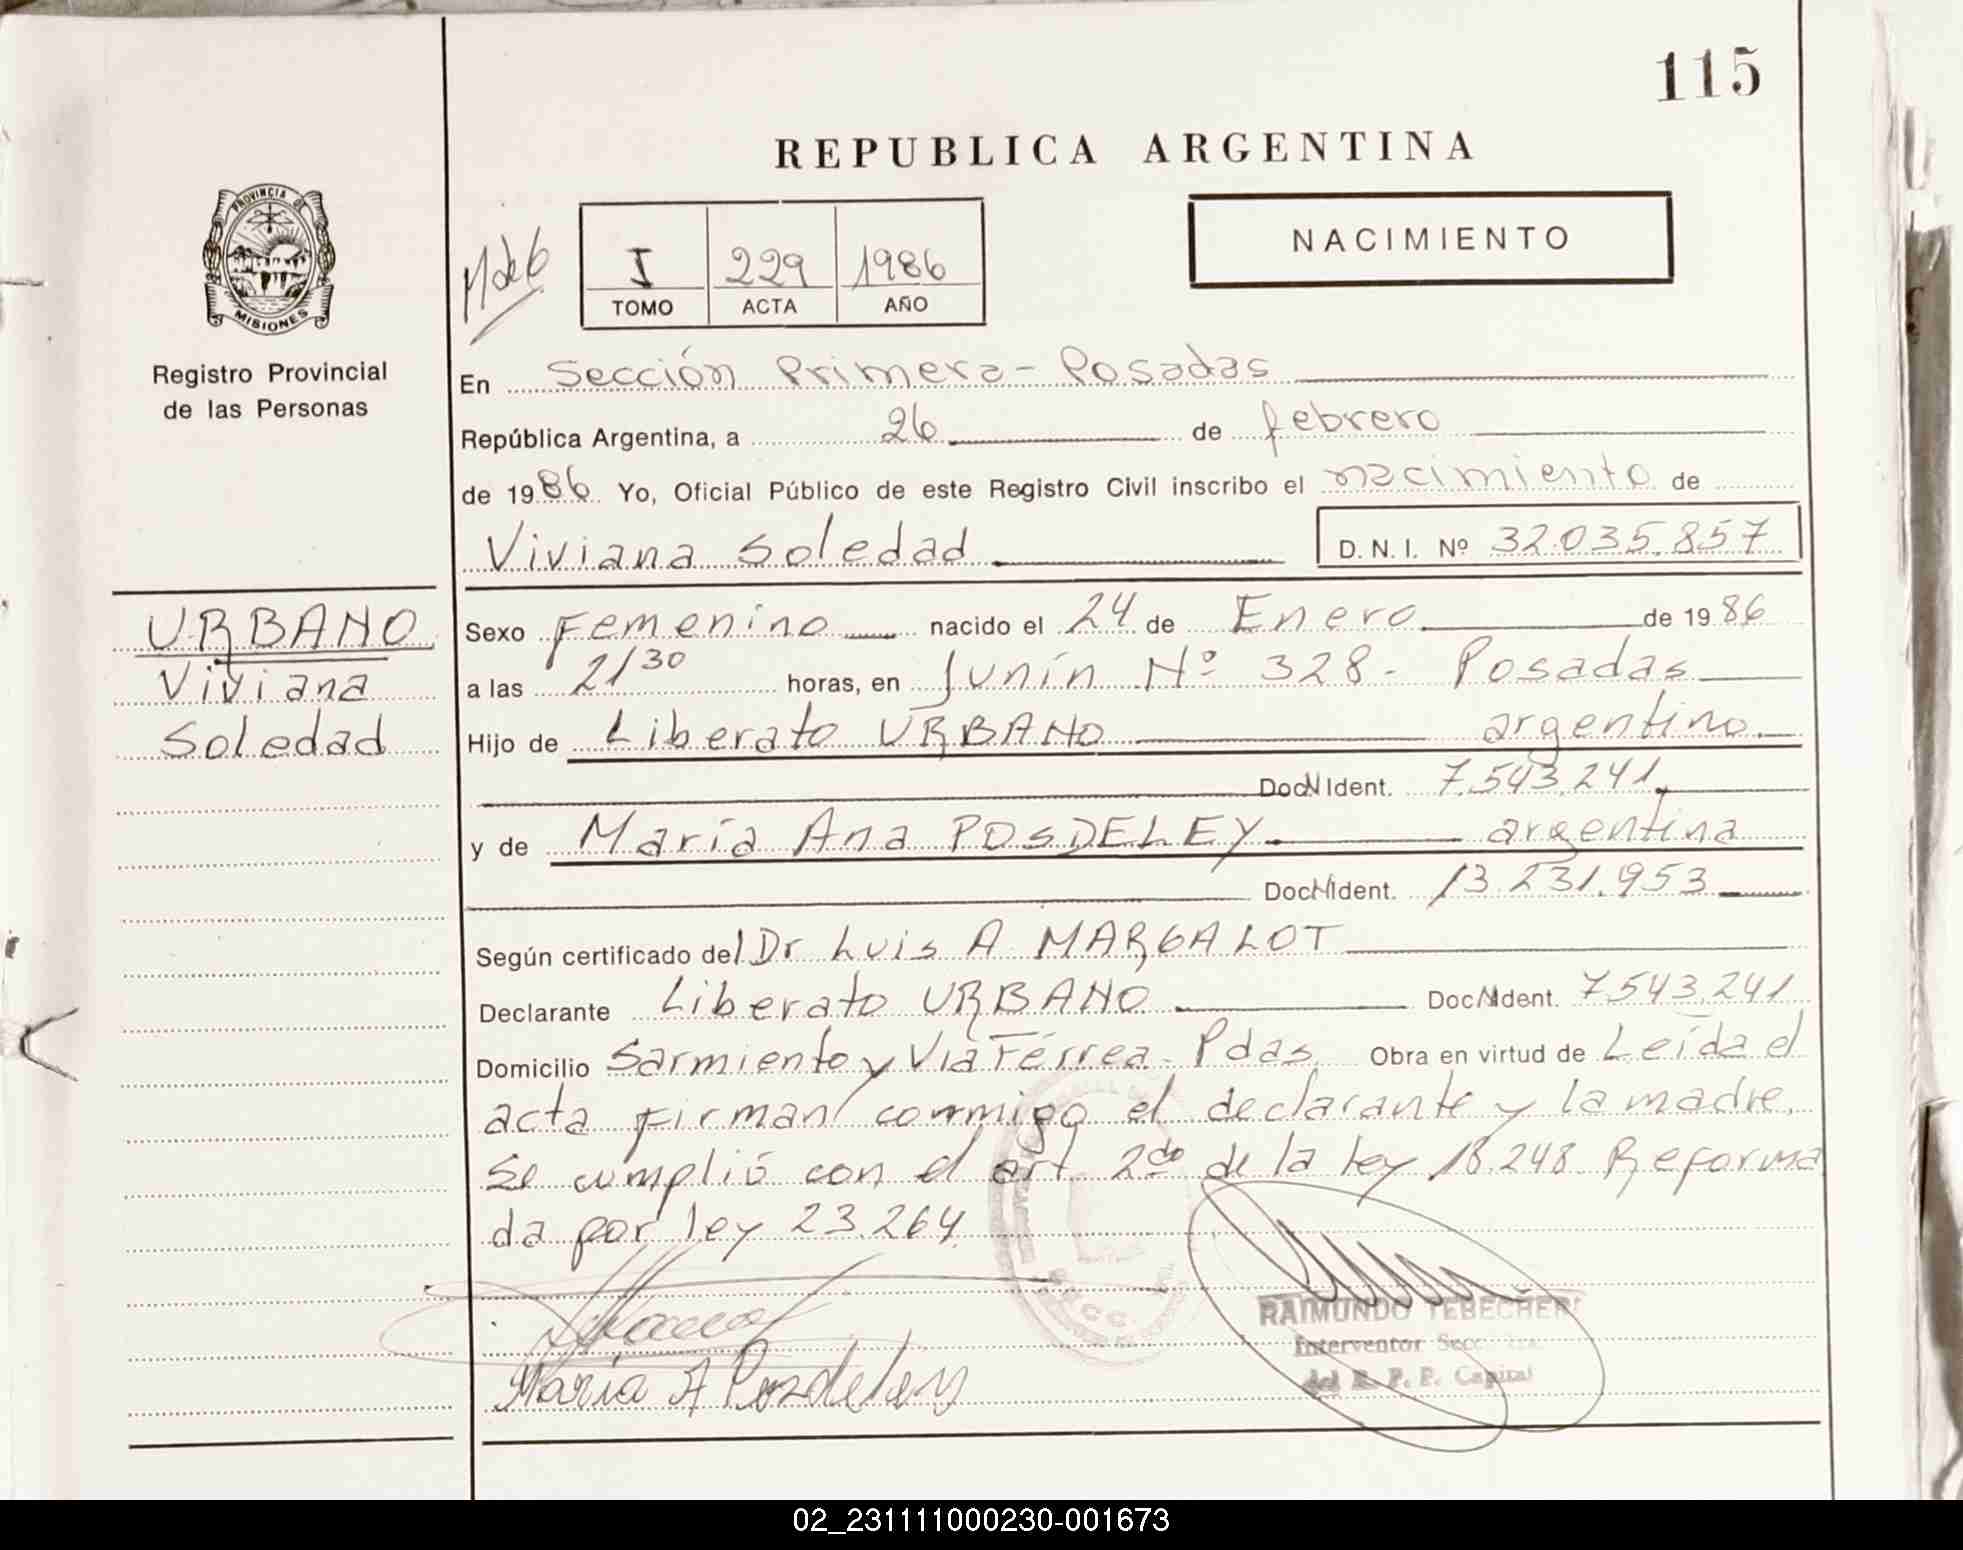 115
REPUBLICA ARGENTINA
PROVINCIA DE
MISIONES
Registro Provincial
de las Personas
I 229 1986
TOMO ACTA AÑO
NACIMIENTO
En Sección Primera - Posadas
República Argentina, a 26 de febrero
de 1986 Yo, Oficial Público de este Registro Civil inscribo el nacimiento de
Viviana Soledad D. N. I. Nº 32.035.857
URBANO
Viviana
Soledad
Sexo Femenino nacido el 24 de Enero de 1986
a las 21 30 horas, en Junín Nº 328 - Posadas
Hijo de Liberato URBANO argentino
Doc. Ident. 7.543.241
y de María Ana POSDELEY argentina
Doc. Ident. 13.231.953
Según certificado del Dr Luis A MARGALOT
Declarante Liberato URBANO Doc. Ident. 7.543.241
Domicilio Sarmiento y Vía Férrea - Pdas. Obra en virtud de Leída el
acta firman conmigo el declarante y la madre.
Se cumplió con el art. 2do de la ley 18.248 Reforma
da por ley 23.264
María A Posdeley
RAIMUNDO TEBECHERI
Interventor Secc. 1ra.
del R. P. P. Capital
02_231111000230-001673